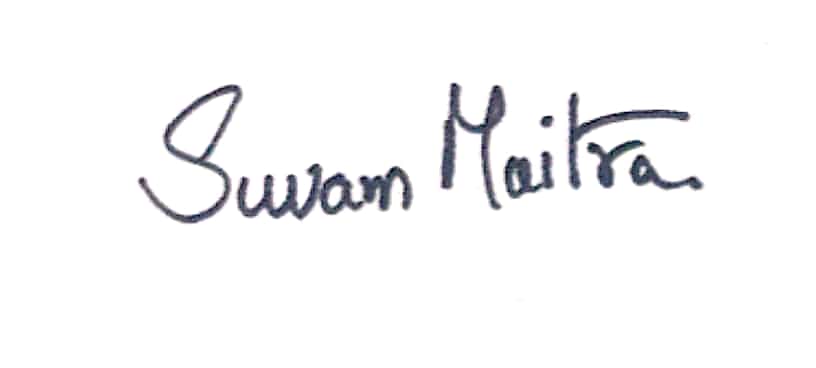 Suvam Maitra